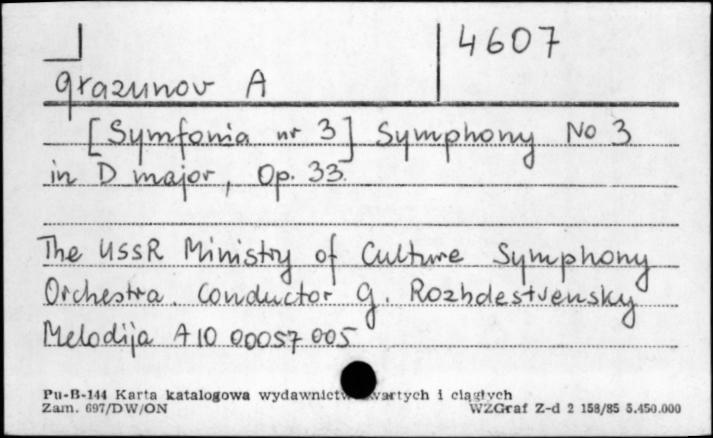 4607
Glazunov A
[Symfonia nr 3] Symphony No 3
in D major, Op. 33.
The USSR Ministry of Culture Symphony
Orchestra. Conductor G. Rozhdestvensky
Melodija A10 00057 005
Pu-B-144 Karta katalogowa wydawnictw zwartych i ciągłych
Zam. 697/DW/ON WZGraf Z-d 2 158/85 5.450.000